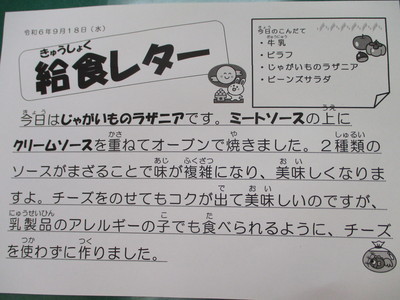 令和6年9月18日(水)
きゅうしょく
給食レター
今日のこんだて
・牛乳
・ピラフ
・じゃがいものラザニア
・ビーンズサラダ
今日はじゃがいものラザニアです。ミートソースの上に
クリームソースを重ねてオーブンで焼きました。2種類の
ソースがまざることで味が複雑になり、美味しくなりま
すよ。チーズをのせてもコクが出て美味しいのですが、
乳製品のアレルギーの子でも食べられるように、チーズ
を使わずに作りました。